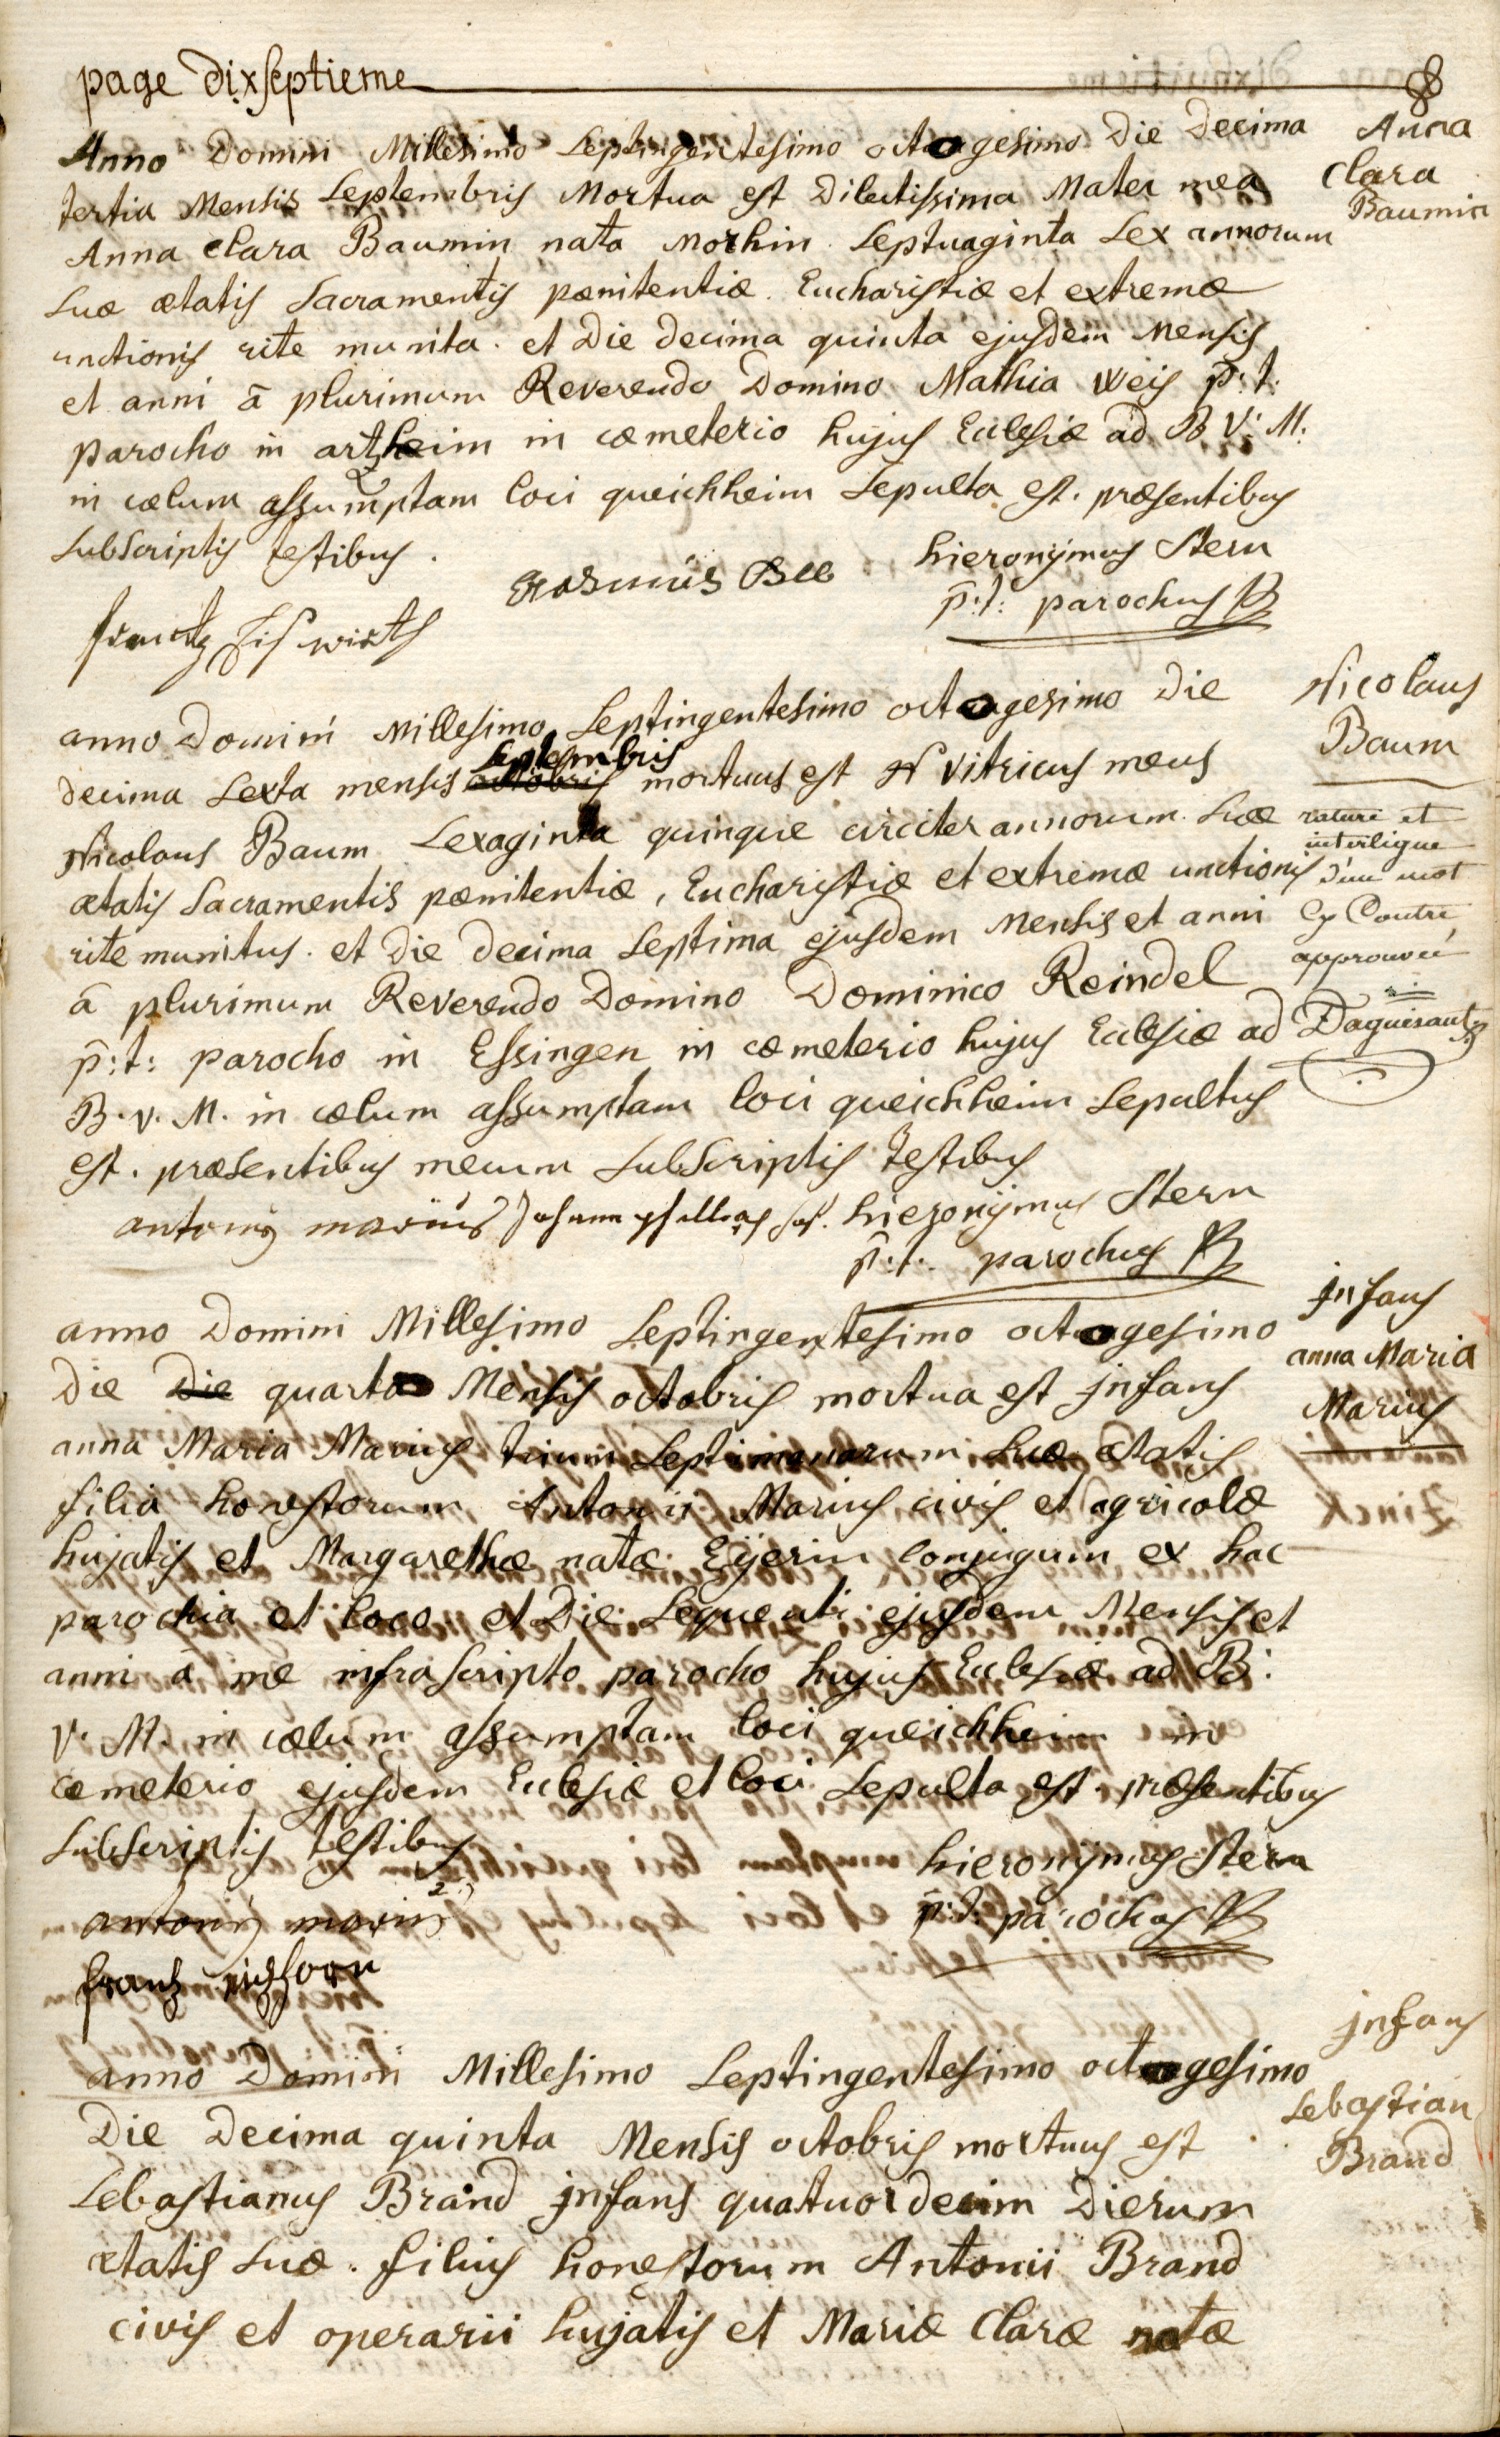 page dixseptieme
Anno Domini Millesimo Septingentesimo octogesimo Die Decima
tertia Mensis Septembris Mortua est Dilectissima Mater mea
Anna Clara Baumin nata Morhin Septuaginta Sex annorum
Suæ ætatis Sacramentis pœnitentiæ. Eucharistiæ et extremæ
unctionis rite munita. et Die decima quinta ejusdem Mensis
et anni ā plurimum Reverendo Domino Mathia Weis p̄:t:
parocho in artzheim in cœmeterio hujus Ecclesiæ ad B V. M.
in cœlum assumptam loci queichheim Sepulta est. præsentibus
Subscriptis testibus.
Anna
Clara
Baumin
hieronÿmus Stern
p̄:t: parochus
anno Domini Millesimo Septingentesimo octogesimo Die
decima Sexta mensis octobris Septembris mortuus est vitricus meus
Nicolaus Baum Sexaginta quinque circiter annorum Suæ
ætatis Sacramentis pœnitentiæ, Eucharistiæ et extremæ unctionis
rite munitus. et Die decima Septima ejusdem Mensis et anni
ā plurimum Reverendo Domino Dominico Reindel
p̄:t: parocho in Essingen in cœmeterio hujus Ecclesiæ ad
B. v. M. in cœlum assumptam loci queichheim Sepultus
est. præsentibus mecum Subscriptis testibus
Nicolaus
Baum
rature et
interligne
d'un mot
Cy Contre
approuvée
antonius marius
hieronÿmus Stern
p̄:t: parochus
anno Domini Millesimo Septingentesimo octogesimo
Die Die quarta Mensis octobris mortua est jnfans
anna Maria Marius trium Septimanarum Suæ ætatis
filia honestorum Antonij Marius civis et agricolæ
hujatis et Margarethæ natæ Eÿerin conjugum ex hac
parochia et loco et Die Sequenti ejusdem Mensis et
anni ā me infrascripto parocho hujus Ecclesiæ ad B:
V. M. in cœlum assumptam loci queichheim in
cœmeterio ejusdem Ecclesiæ et loci Sepulta est. præsentibus
Subscriptis testibus
jnfans
anna Maria
Marius
hieronÿmus Stern
p̄:t: parochus
antonius marius
anno Domini Millesimo Septingentesimo octogesimo
Die Decima quinta Mensis octobris mortuus est
Sebastianus Brand jnfans quatuordecim Dierum
ætatis Suæ. filius honestorum Antonii Brand
civis et operarii hujatis et Mariæ Claræ natæ
jnfans
Sebastian
Brand